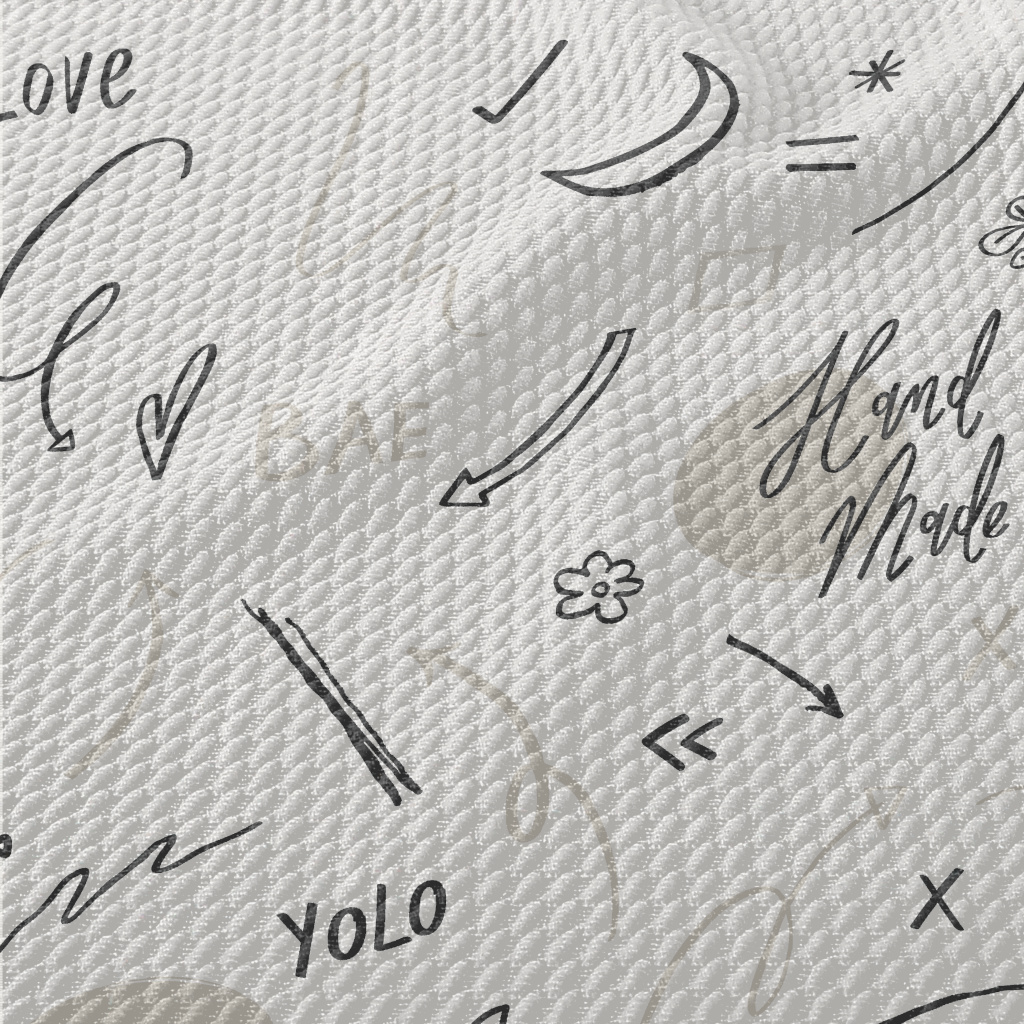 Love
BAE
Hand
Made
YOLO
X